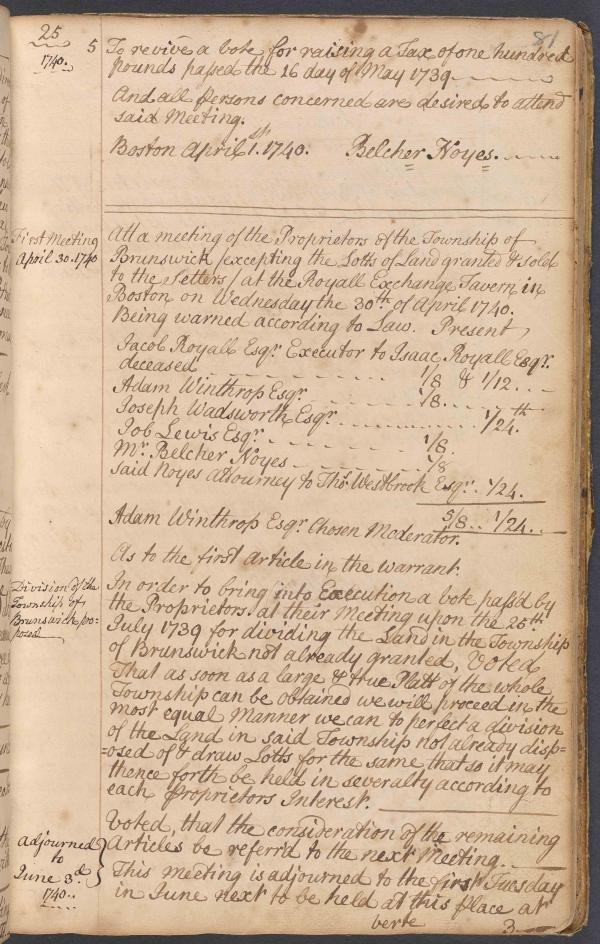 81
25
1740.
5 To revive a vote for raising a Tax of one hundred
pounds passed the 16 day of May 1739
And all persons concerned are desired to attend
said Meeting.
Boston April 1.st 1740. Belcher Noyes.
First Meeting
April 30. 1740
Att a meeting of the Proprietors of the Township of
Brunswick /excepting the Lotts of Land granted & sold
to the Setlers/ at the Royall Exchange Tavern in
Boston on Wednesday the 30th of April 1740.
Being warned according to Law. Present
Jacob Royall Esqr. Executor to Isaac Royall Esqr.
deceased 1/8 & 1/12
Adam Winthrop Esqr 1/8
Joseph Wadsworth Esqr 1/24th
Job Lewis Esqr 1/8
Mr. Belcher Noyes 1/8
said Noyes attourney to Thos. Westbrook Esqr. 1/24
5/8 1/24
Adam Winthrop Esqr. Chosen Moderator.
As to the first article in the warrant.
Division of the
Township of
Brunswick pro=
posed
In order to bring into Execution a vote pass'd by
the Proprietors at their Meeting upon the 25th
July 1739 for dividing the Land in the Township
of Brunswick not already granted, Voted
That as soon as a large & true Platt of the whole
Township can be obtained we will proceed in the
most equal Manner we can to perfect a division
of the Land in said Township not already disp=
=osed of & draw Lotts for the same that so it may
thence forth be held in severalty according to
each Proprietors Interest.
Voted, that the consideration of the remaining
Articles be referr'd to the next Meeting.
Adjourned
to
June 3d
1740
This meeting is adjourned to the first Tuesday
in June next to be held at this place at
verte 3